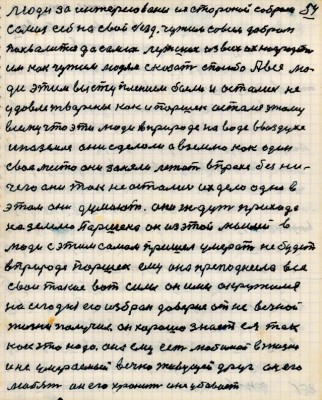 люди заинтересовани стороной собрали 84
самих себя на свой чужим совсем добром
похвалится да самих лутших из всех их
им как чужим людям сказать спасибо А все лю-
ди этим выступлением были и остались не
удовлетварены как и паршек остался этому
всему что эти люди в природе на воде в воздухе
и на земле они сделали а в землю как один
свое место они заняли лежат в прахе без ни-
чего они так не остались их дело одно в
этом они думают. они ждут прихода
на землю Паршека он из этой мыслей в
люди с этим самим пришел умерать не будет
в природе паршек ему она преподнесла все
свои такие вот силы он ими окружился
на сегодня его избран доверия от не вечной
жизни получил. он хорошо знает ея так
как это надо. она ему есть любимой в жизни
и не умираемый вечно живущей друг он его
любят он его хранит и не убивает